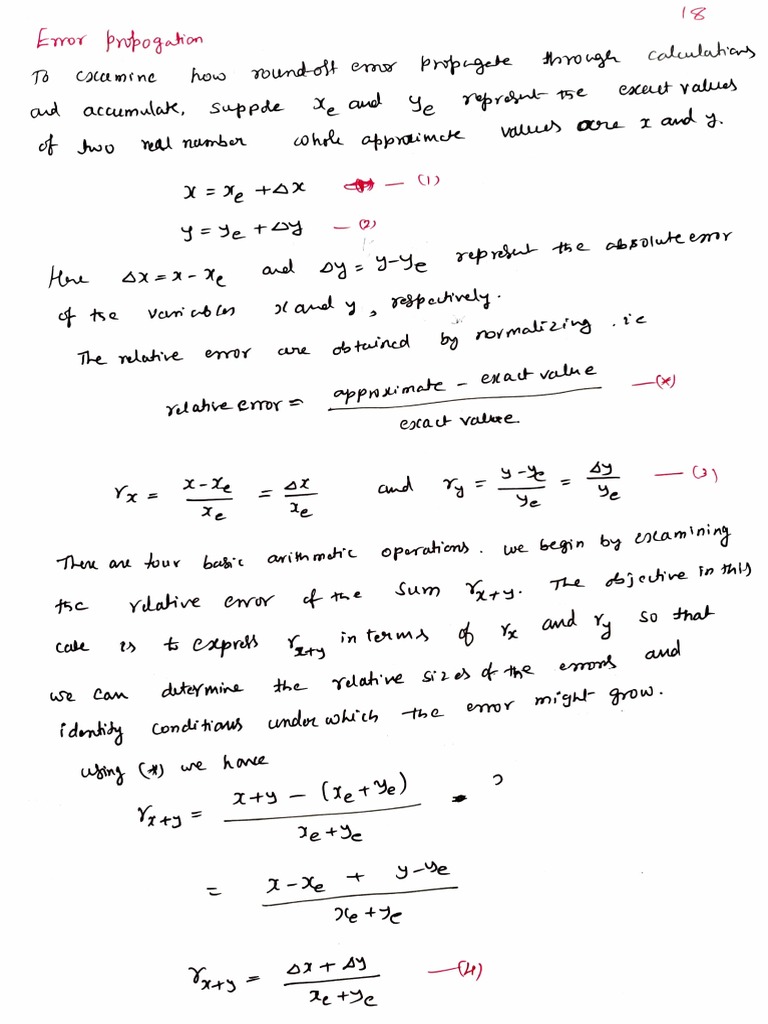 18
Error propogation
To examine how roundoff error propagate through calculations
and accumulate, suppose xₑ and yₑ represent the exact values
of two real number whole approximate values are x and y.
x = xₑ + Δx — (1)
y = yₑ + Δy — (2)
Here Δx = x - xₑ and Δy = y - yₑ represent the absolute error
of the variables x and y, respectively.
The relative error are obtained by normalizing . ie
relative error = (approximate - exact value) / (exact value.) — (*)
rₓ = (x - xₑ) / xₑ = Δx / xₑ and r_y = (y - yₑ) / yₑ = Δy / yₑ — (3)
There are four basic arithmatic operations. we begin by examining
the relative error of the sum r_{x+y}. The objective in this
case is to express r_{x+y} in terms of rₓ and r_y so that
we can determine the relative sizes of the errors and
identity conditions under which the error might grow.
using (*) we have
r_{x+y} = (x + y - (xₑ + yₑ)) / (xₑ + yₑ)
= (x - xₑ + y - yₑ) / (xₑ + yₑ)
r_{x+y} = (Δx + Δy) / (xₑ + yₑ) — (4)